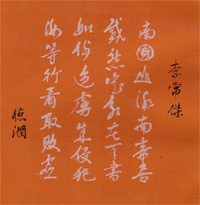 李常傑
南國山河南帝居
截然定分在天書
如何逆虜來侵犯
汝等行看取敗虛
潤